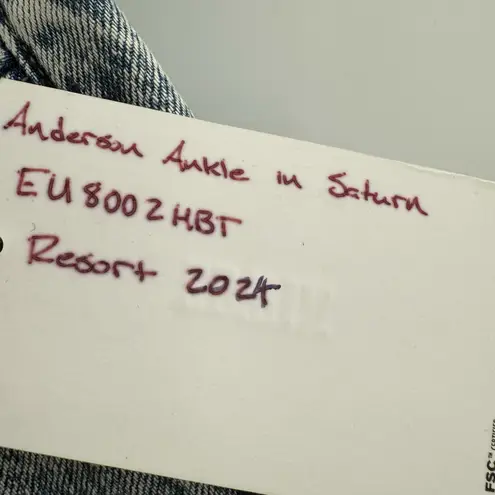 Anderson Ankle in Saturn
EU8002HBT
Resort 2024
FSC™